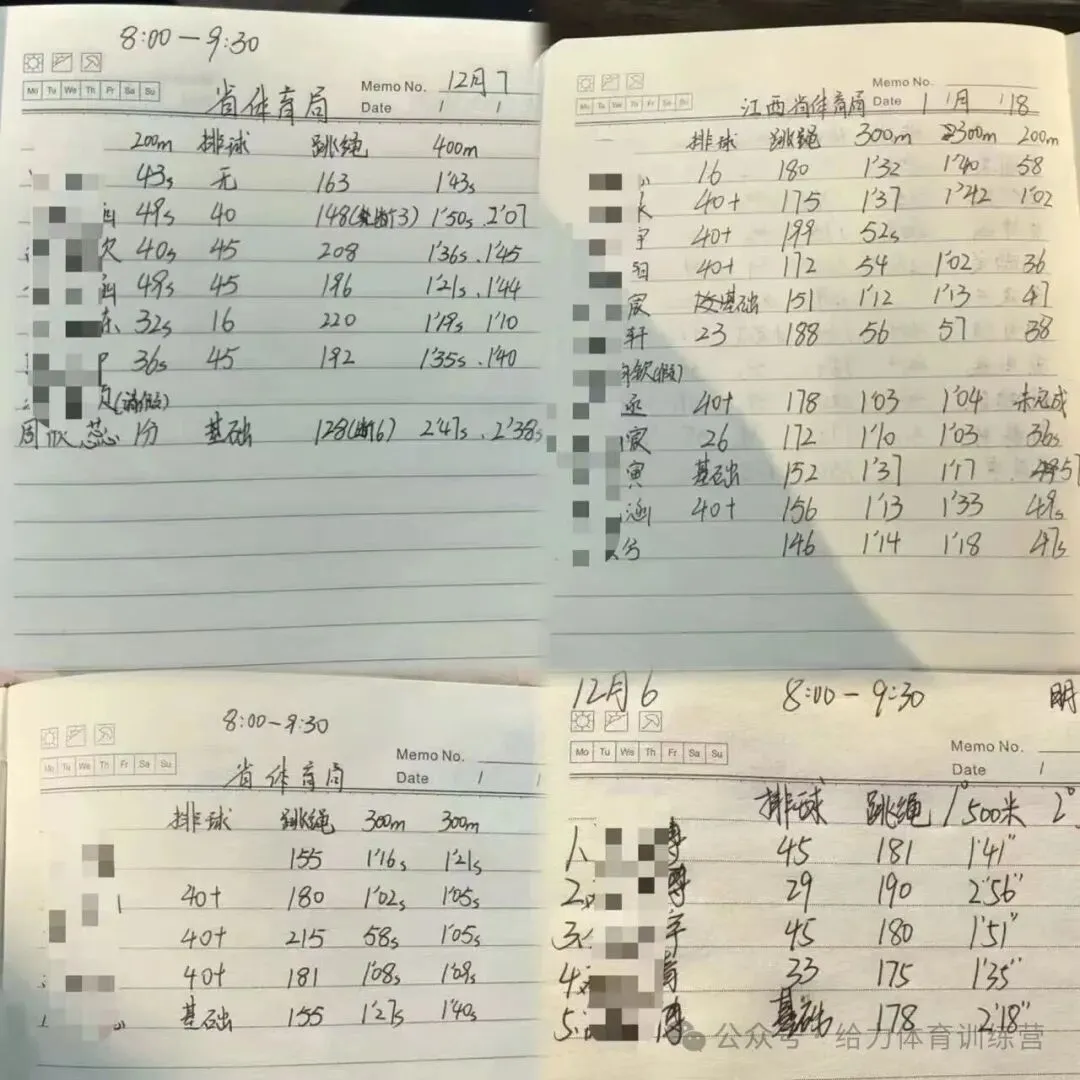 8:00-9:30
Mo Tu We Th Fr Sa Su
Memo No. 12月7
省体育局 Date
200m 排球 跳绳 400m
43s 无 163 1'43s
49s 40 148(断3) 1'50s、2'07
欠 40s 45 208 1'36s、1'45
49s 45 196 1'21s、1'44
32s 16 220 1'19s、1'10
36s 45 192 1'35s、1'40
(请假)
1分 基础 128(断6) 2'47s、2'38s
Mo Tu We Th Fr Sa Su
Memo No.
江西省体育局 Date 1月18
排球 跳绳 300m 300m 200m
16 180 1'32 1'40 58
40+ 175 1'37 1'42 1'02
40+ 199 52s
40+ 172 54 1'02 36
宸 基础 151 1'12 1'13 47
轩 23 188 56 57 38
钦(假)
丞 40+ 178 1'03 1'04 未完成
宸 26 172 1'10 1'03 36s
寅 基础 152 1'37 1'17 57
涵 40+ 156 1'13 1'33 49s
146 1'14 1'18 47s
8:00-9:30
Mo Tu We Th Fr Sa Su
Memo No.
省体育局 Date
排球 跳绳 300m 300m
155 1'16s 1'21s
40+ 180 1'02s 1'05s
40+ 215 58s 1'05s
40+ 181 1'08s 1'09s
基础 155 1'27s 1'40s
12月6 8:00-9:30 明
Mo Tu We Th Fr Sa Su
Memo No.
Date
排球 跳绳 1° 500米 2°
1、 45 181 1'41"
2、 29 190 2'56"
3、 45 180 1'51"
4、 33 175 1'35"
5、 基础 178 2'18"
公众号·给力体育训练营